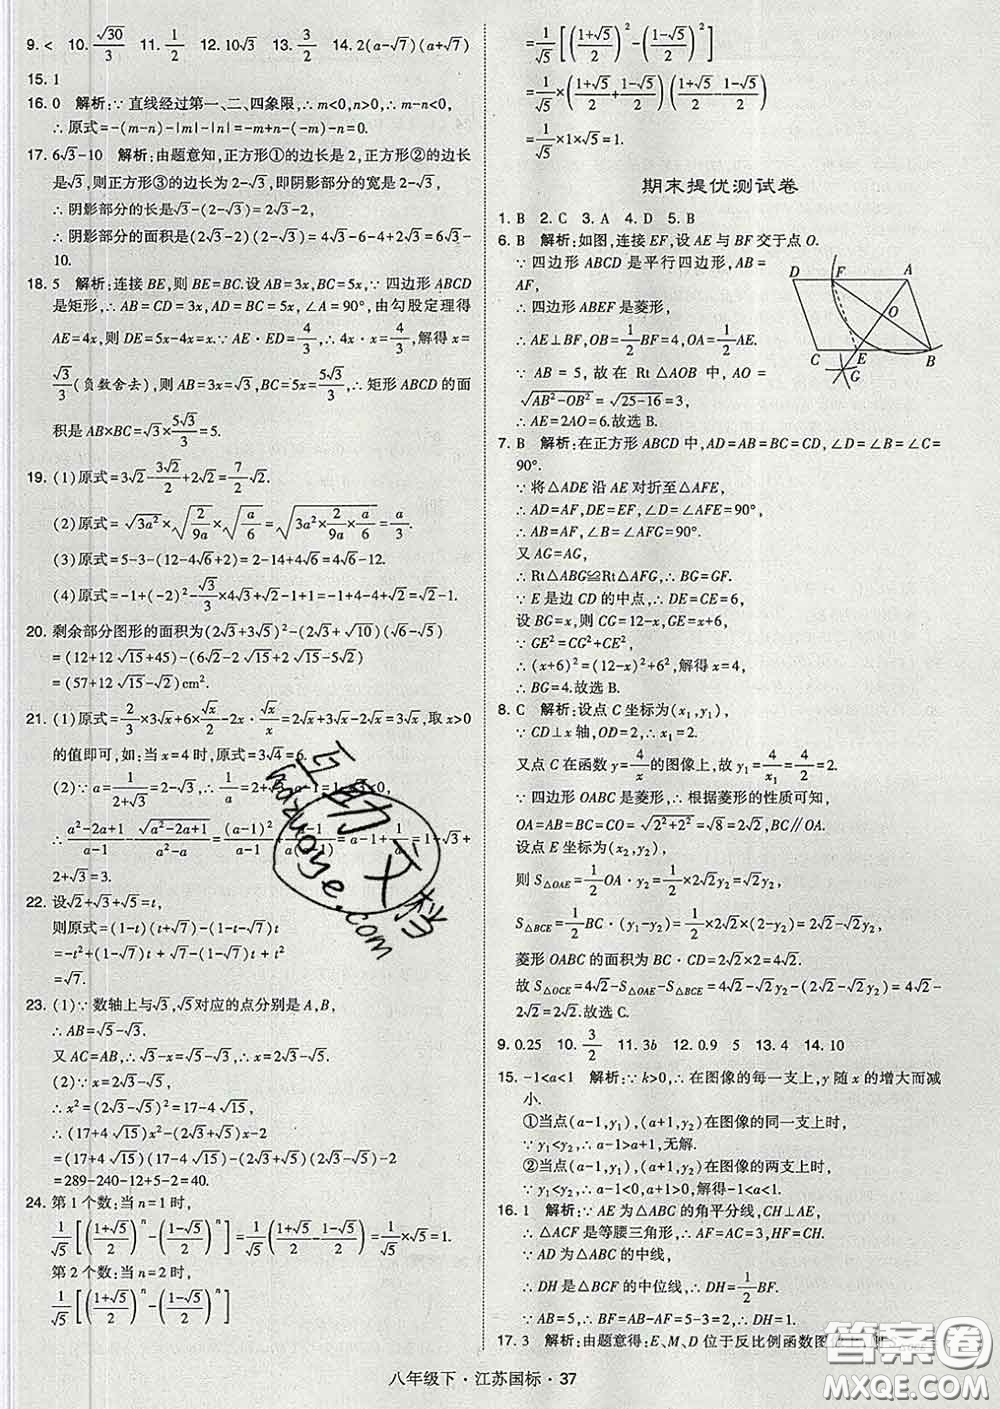 9. < 10. √30/3 11. 1/2 12. 10√3 13. 3/2 14. 2(a-√7)(a+√7)
15. 1
16. 0 解析:∵直线经过第一、二、四象限,∴m<0,n>0,
∴原式=-(m-n)-|m|-|n|=-m+n-(-m)-n=0.
17. 6√3-10 解析:由题意知,正方形①的边长是2,正方形②的边长
是√3,则正方形③的边长为2-√3,即阴影部分的宽是2-√3,
∴阴影部分的长是√3-(2-√3)=2√3-2,
∴阴影部分的面积是(2√3-2)(2-√3)=4√3-6-4+2√3=6√3-
10.
18. 5 解析:连接BE,则BE=BC.设AB=3x,BC=5x,∵四边形ABCD
是矩形,∴AB=CD=3x,AD=BC=5x,∠A=90°,由勾股定理得
AE=4x,则DE=5x-4x=x.∵AE·ED=4/3,∴4x·x=4/3,解得x=
√3/3(负数舍去),则AB=3x=√3,BC=5x=5√3/3,∴矩形ABCD的面
积是AB×BC=√3×5√3/3=5.
19. (1)原式=3√2-3√2/2+2√2=7/2√2.
(2)原式=√3a²×√(2/9a)×√(a/6)=√(3a²×2/9a×a/6)=a/3.
(3)原式=5-3-(12-4√6+2)=2-14+4√6=4√6-12.
(4)原式=-1+(-2)²-√3/3×4√3+√2-1+1=-1+4-4+√2=√2-1.
20. 剩余部分图形的面积为(2√3+3√5)²-(2√3+√10)(√6-√5)
=(12+12√15+45)-(6√2-2√15+2√15-5√2)
=(57+12√15-√2)cm².
21. (1)原式=2/3×3√x+6×√x/2-2x·√x/x=2√x+3√x-2√x=3√x,取x>0
的值即可,如:当x=4时,原式=3√4=6.
(2)∵a=1/(2+√3)=2-√3,∴1/a=2+√3,a-1=1-√3<0,
∴(a²-2a+1)/(a-1)-√(a²-2a+1)/(a²-a)=(a-1)²/(a-1)+(a-1)/a(a-1)=a-1+1/a=1-√3+
2+√3=3.
22. 设√2+√3+√5=t,
则原式=(1-t)(t+√7)-(1-t-√7)t
=-t²+(1-√7)t+√7-(1-√7)t+t²
=√7.
23. (1)∵数轴上与√3,√5对应的点分别是A,B,
∴AB=√5-√3.
又AC=AB,∴√3-x=√5-√3,∴x=2√3-√5.
(2)∵x=2√3-√5,
∴x²=(2√3-√5)²=17-4√15,
∴(17+4√15)x²-(2√3+√5)x-2
=(17+4√15)(17-4√15)-(2√3+√5)(2√3-√5)-2
=289-240-12+5-2=40.
24. 第1个数:当n=1时,
1/√5[((1+√5)/2)ⁿ-((1-√5)/2)ⁿ]=1/√5((1+√5)/2-(1-√5)/2)=1/√5×√5=1.
第2个数:当n=2时,
1/√5[((1+√5)/2)ⁿ-((1-√5)/2)ⁿ]
=1/√5[((1+√5)/2)²-((1-√5)/2)²]
=1/√5×((1+√5)/2+(1-√5)/2)((1+√5)/2-(1-√5)/2)
=1/√5×1×√5=1.
期末提优测试卷
1. B 2. C 3. A 4. D 5. B
6. B 解析:如图,连接EF,设AE与BF交于点O.
∵四边形ABCD是平行四边形,AB=
AF,
∴四边形ABEF是菱形,
∴AE⊥BF,OB=1/2BF=4,OA=1/2AE.
∵AB=5,故在Rt△AOB中,AO=
√(AB²-OB²)=√(25-16)=3,
∴AE=2AO=6.故选B.
D F A
O
C E B
G
7. B 解析:在正方形ABCD中,AD=AB=BC=CD,∠D=∠B=∠C=
90°.
∵将△ADE沿AE对折至△AFE,
∴AD=AF,DE=EF,∠D=∠AFE=90°,
∴AB=AF,∠B=∠AFG=90°.
又AG=AG,
∴Rt△ABG≌Rt△AFG,∴BG=GF.
∵E是边CD的中点,∴DE=CE=6,
设BG=x,则CG=12-x,GE=x+6,
∵GE²=CG²+CE²,
∴(x+6)²=(12-x)²+6²,解得x=4,
∴BG=4.故选B.
8. C 解析:设点C坐标为(x₁,y₁),
∵CD⊥x轴,OD=2,∴x₁=2.
又点C在函数y=4/x的图像上,故y₁=4/x₁=4/2=2.
∵四边形OABC是菱形,∴根据菱形的性质可知,
OA=AB=BC=OC=√(2²+2²)=√8=2√2,BC∥OA.
设点E坐标为(x₂,y₂),
则S△OAE=1/2OA·y₂=1/2×2√2y₂=√2y₂,
S△BCE=1/2BC·(y₁-y₂)=1/2×2√2×(2-y₂)=2√2-√2y₂,
菱形OABC的面积为BC·CD=2√2×2=4√2.
故S△OCE=4√2-S△OAE-S△BCE=4√2-√2y₂-(2√2-√2y₂)=4√2-
2√2=2√2.故选C.
9. 0.25 10. 3/2 11. 3b 12. 0.9 5 13. 4 14. 10
15. -1<a<1 解析:∵k>0,∴在图像的每一支上,y随x的增大而减
小.
①当点(a-1,y₁),(a+1,y₂)在图像的同一支上时,
∵y₁<y₂,∴a-1>a+1,无解.
②当点(a-1,y₁),(a+1,y₂)在图像的两支上时,
∵y₁<y₂,∴a-1<0,a+1>0,解得-1<a<1.
16. 1 解析:∵AE为△ABC的角平分线,CH⊥AE,
∴△ACF是等腰三角形,∴AF=AC=3.
∵AD为△ABC的中线,
∴DH是△BCF的中位线,∴DH=1/2BF.
∵AB=5,∴BF=AB-AF=5-3=2,∴DH=1.
17. 3 解析:由题意得:E,M,D位于反比例函数图
八年级下·江苏国标·37
互助文档
hdzuoye.com
答案圈
MXQE.COM